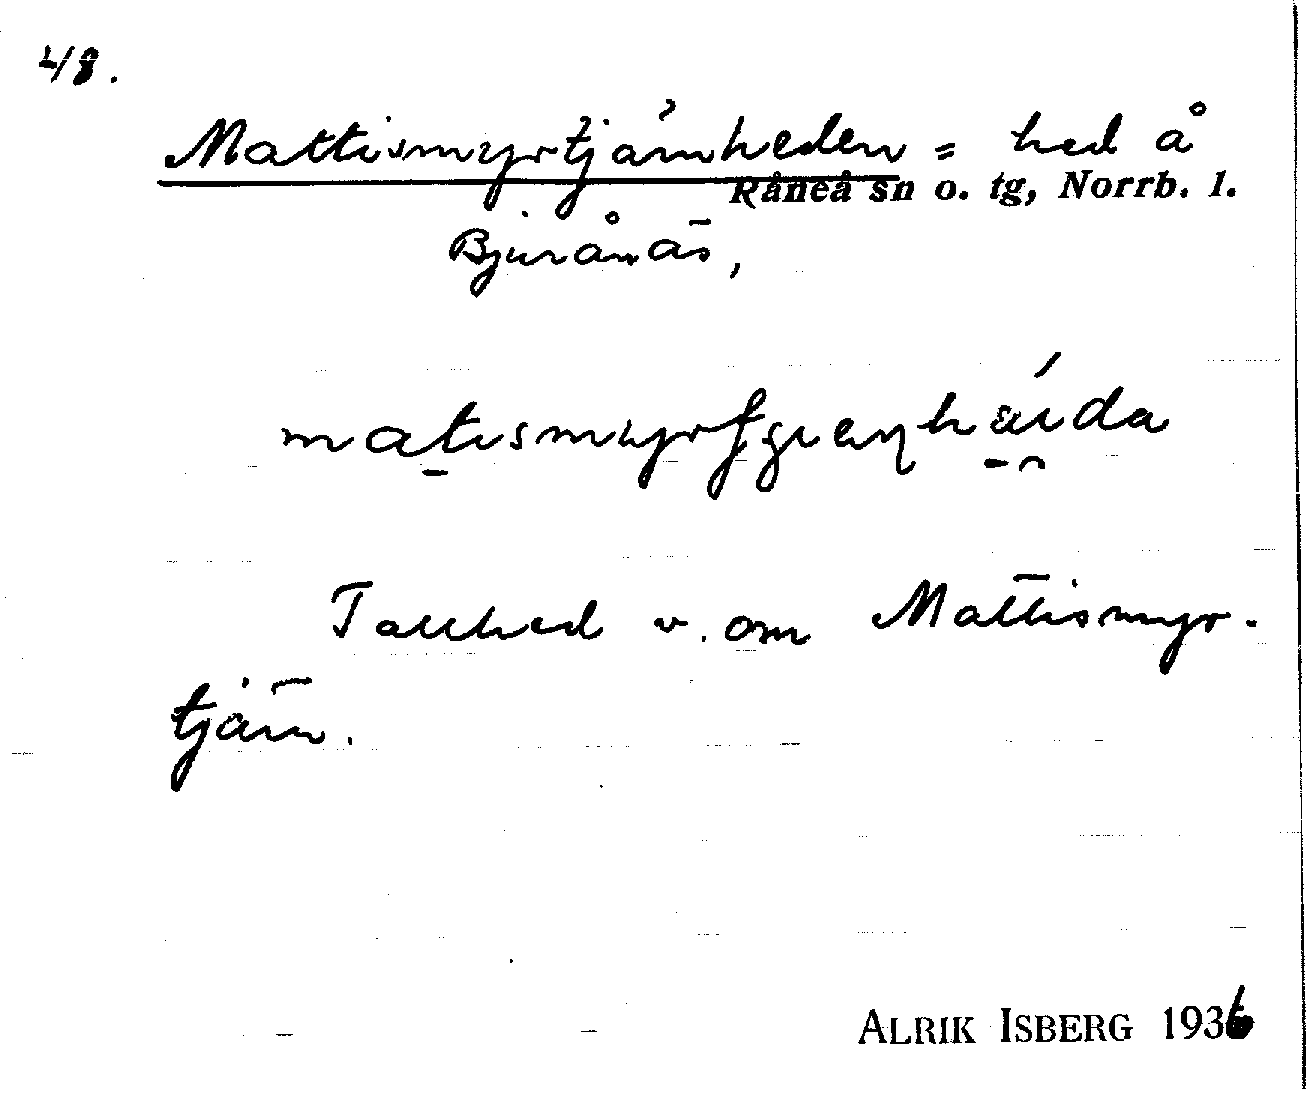 4/8.
Mattismyrtjärnheden = hed å
Råneå sn o. tg, Norrb. l.
Bjurånäs,
Tallhed v. om Mattismyr-
tjärn.
ALRIK ISBERG 1936